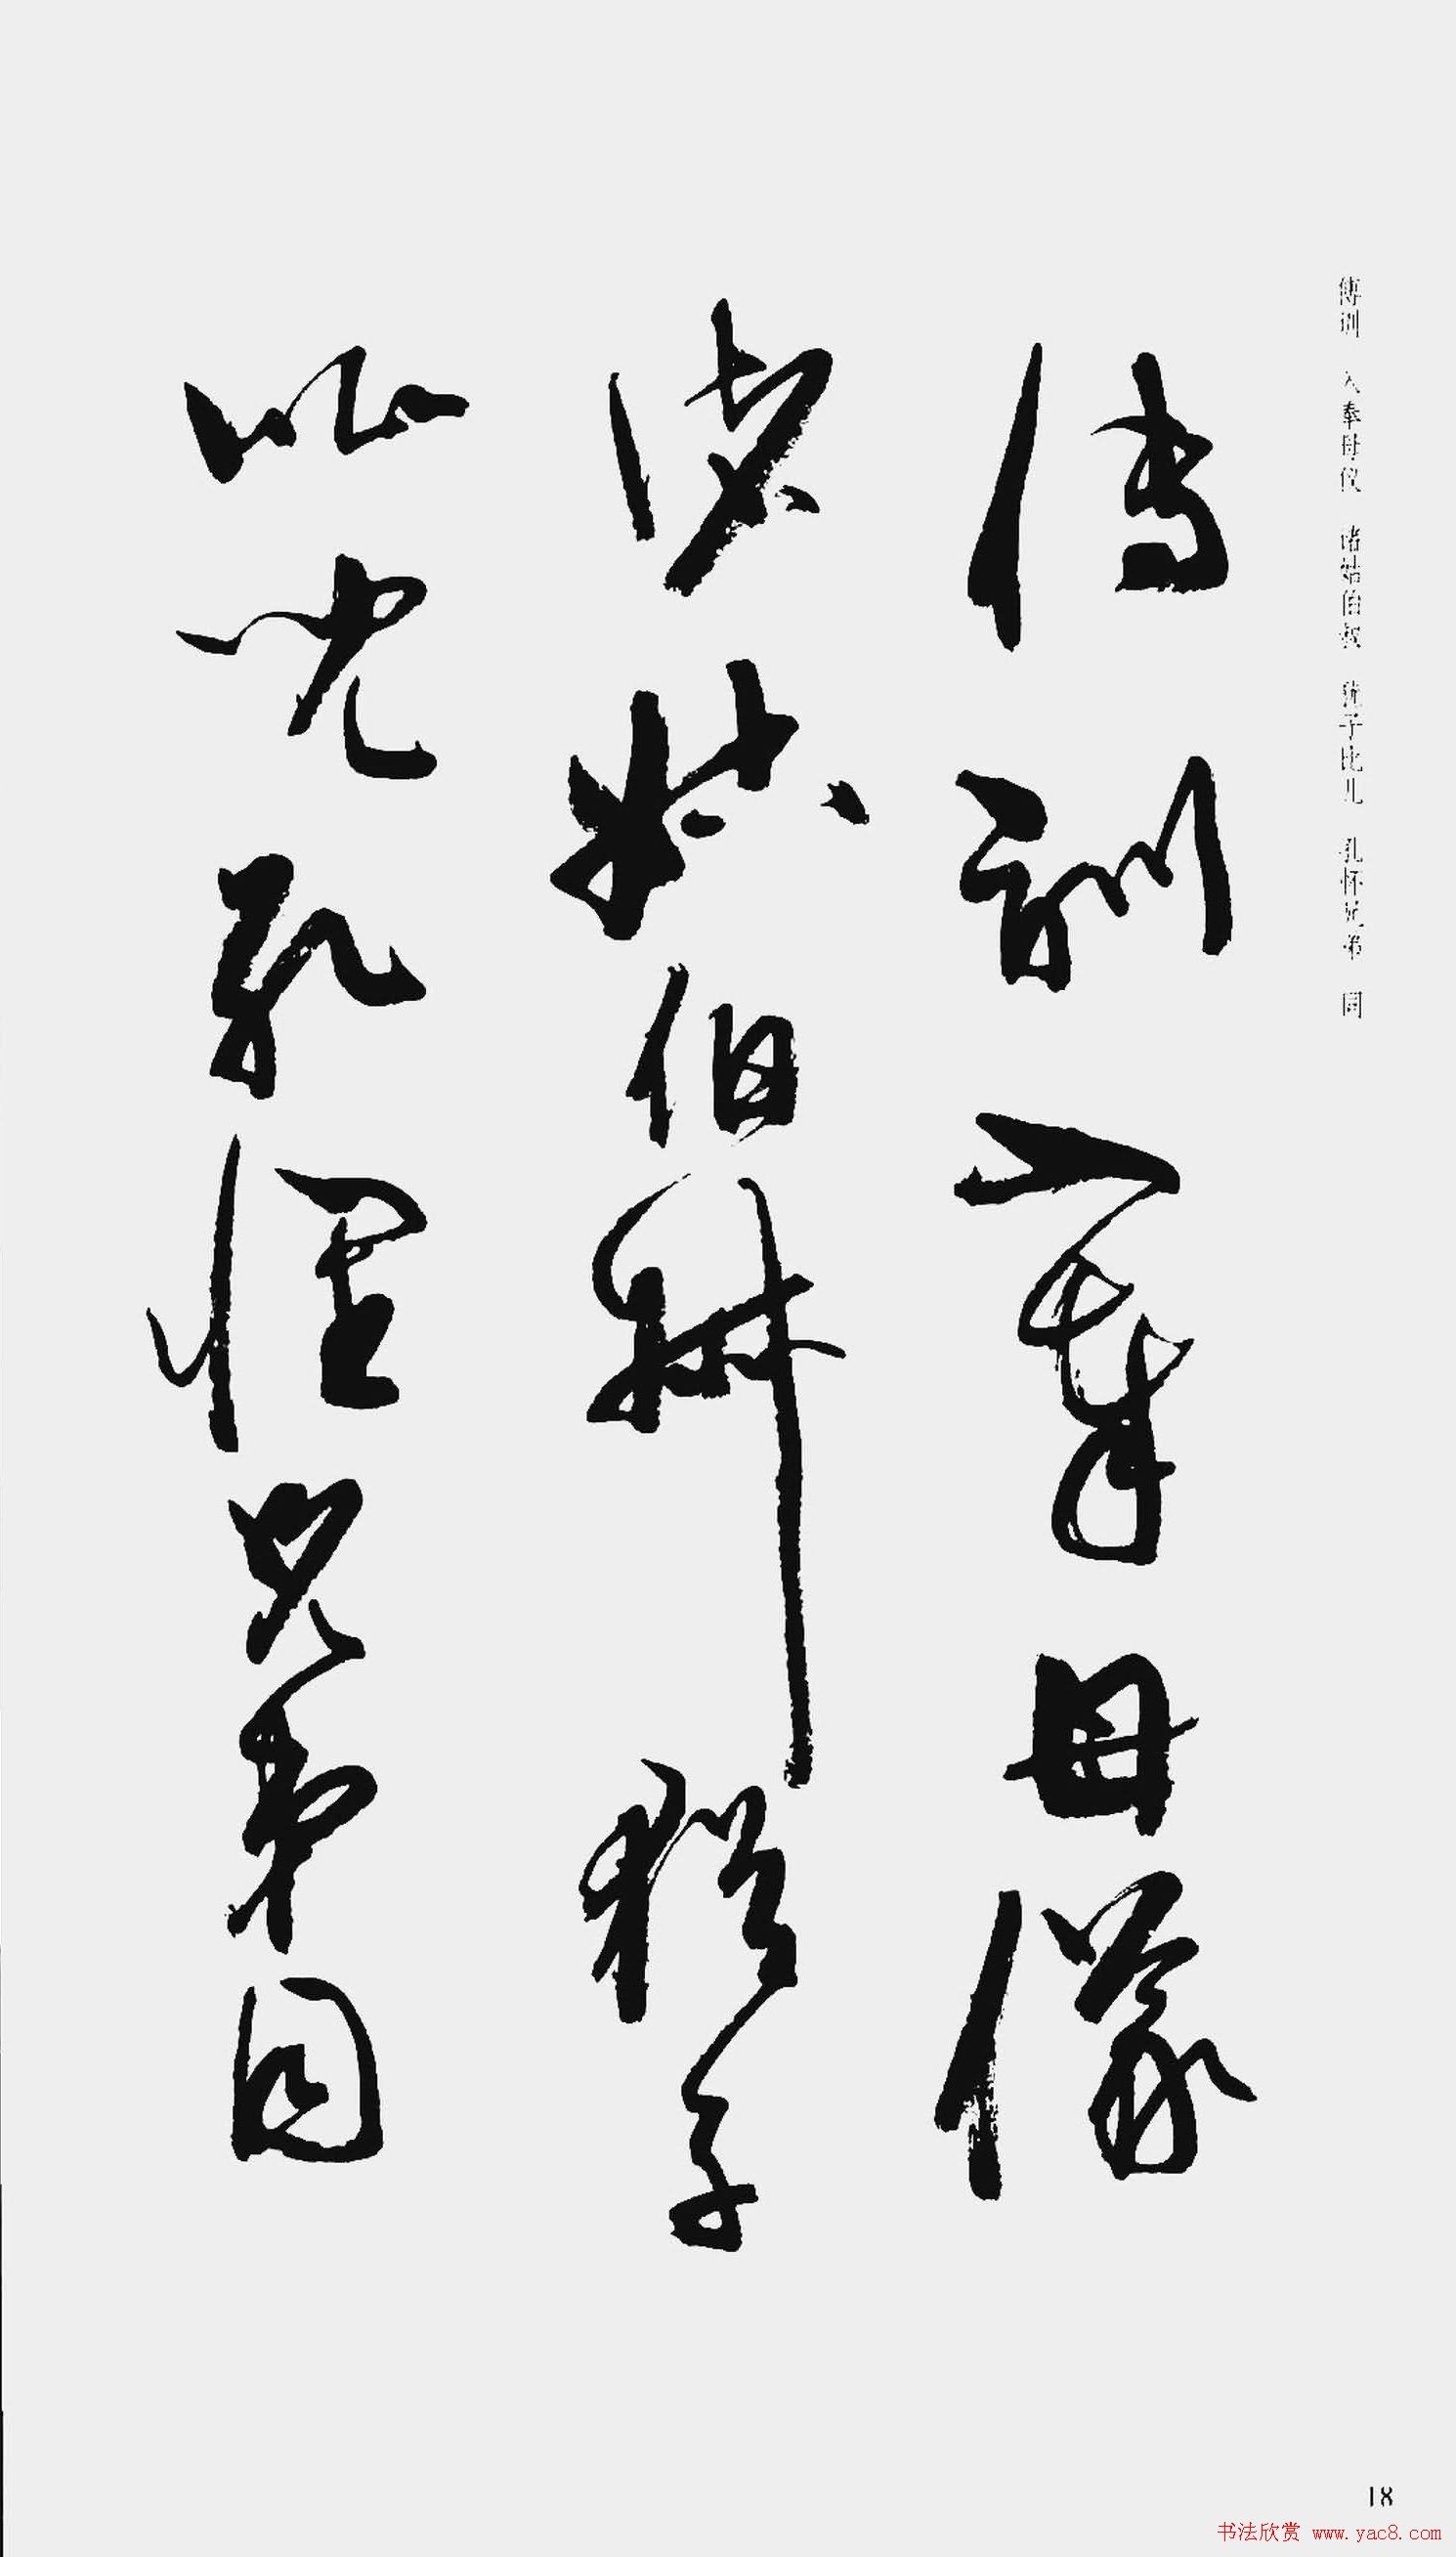 傅训 入奉母仪 诸姑伯叔 犹子比儿 孔怀兄弟 同
傅訓入奉母儀
諸姑伯叔猶子
比兒孔懷兄弟同
18
书法欣赏 www.yac8.com